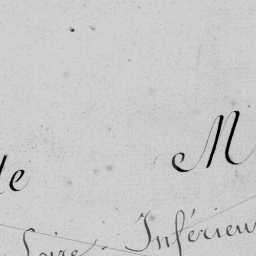 de M
Loire Inférieu